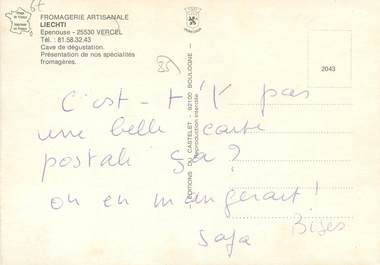 FROMAGERIE ARTISANALE
LIECHTI
Epenouse - 25530 VERCEL
Tél. : 81.58.32.43
Cave de dégustation.
Présentation de nos spécialités
fromagères.
2043
ÉDITIONS DU CASTELET - 92100 BOULOGNE
Reproduction interdite
C'est-t'y pas
une belle carte
postale ça ?
on en mangerait !
Bises